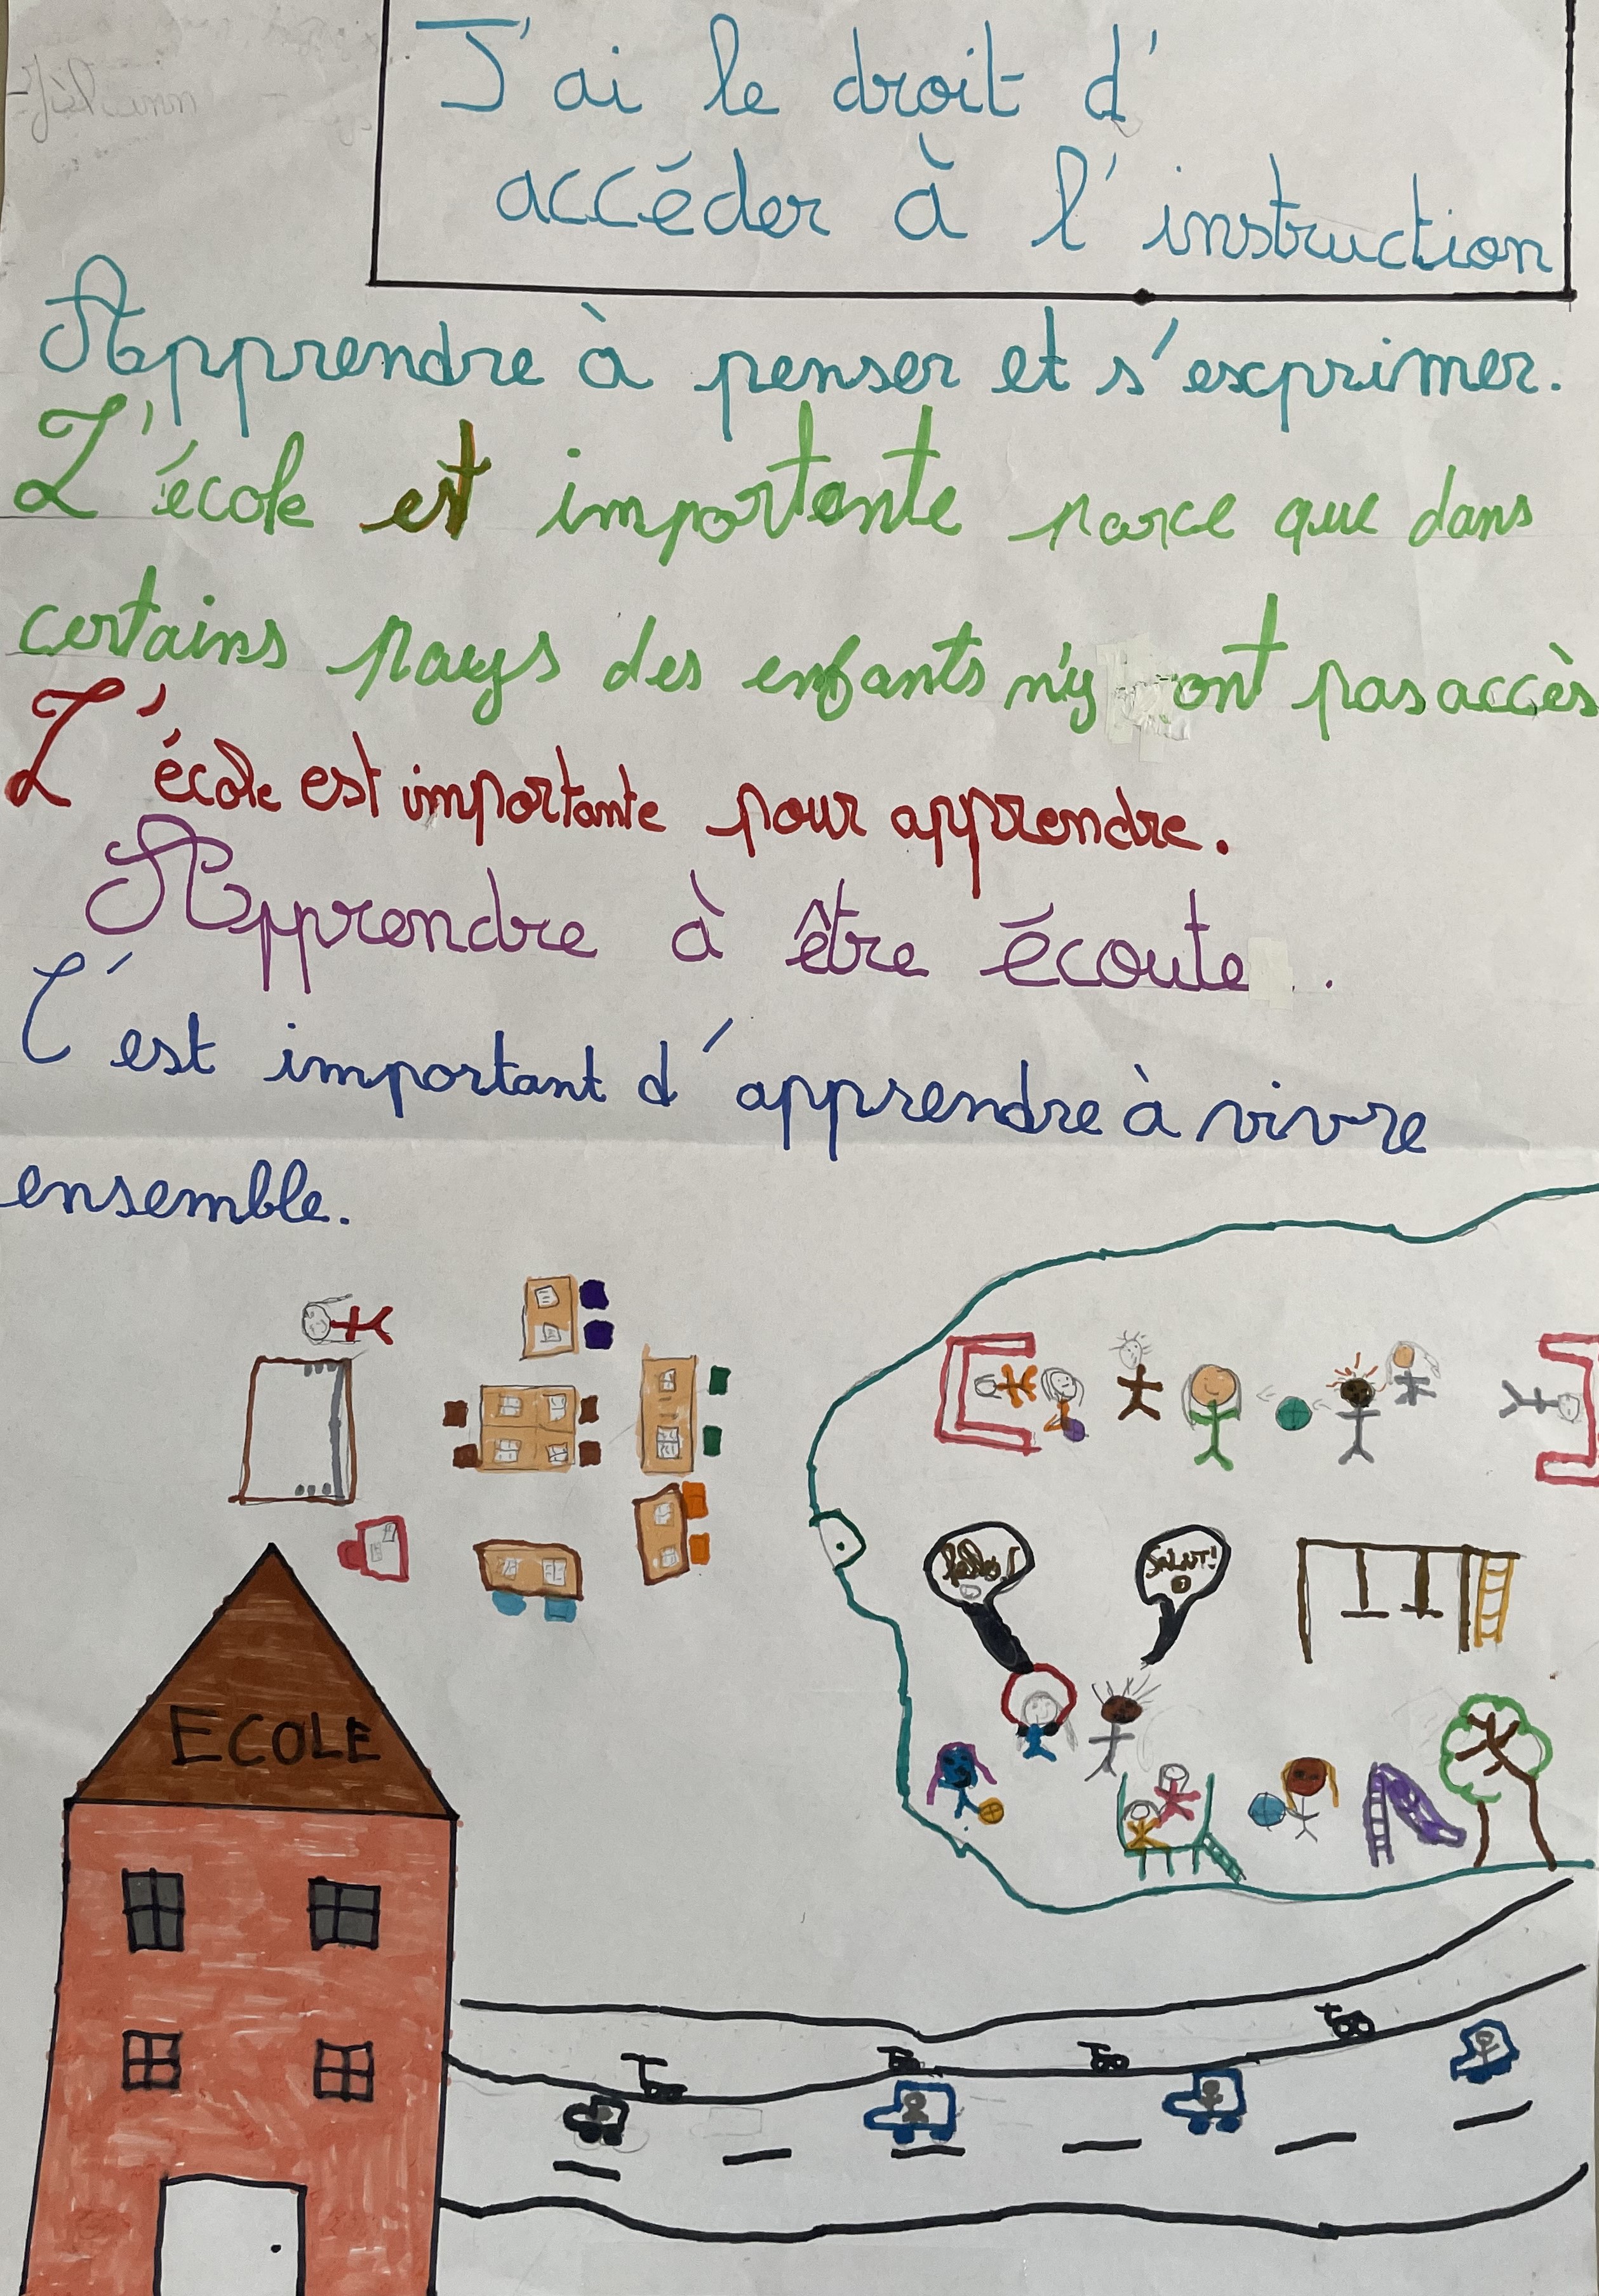 J'ai le droit d'
accéder à l'instruction
Apprendre à penser et s'exprimer.
L'école est importante parce que dans
certains pays des enfants n'y ont pas accès
L'école est importante pour apprendre.
Apprendre à être écouté.
C'est important d'apprendre à vivre
ensemble.
SALUT!
ECOLE